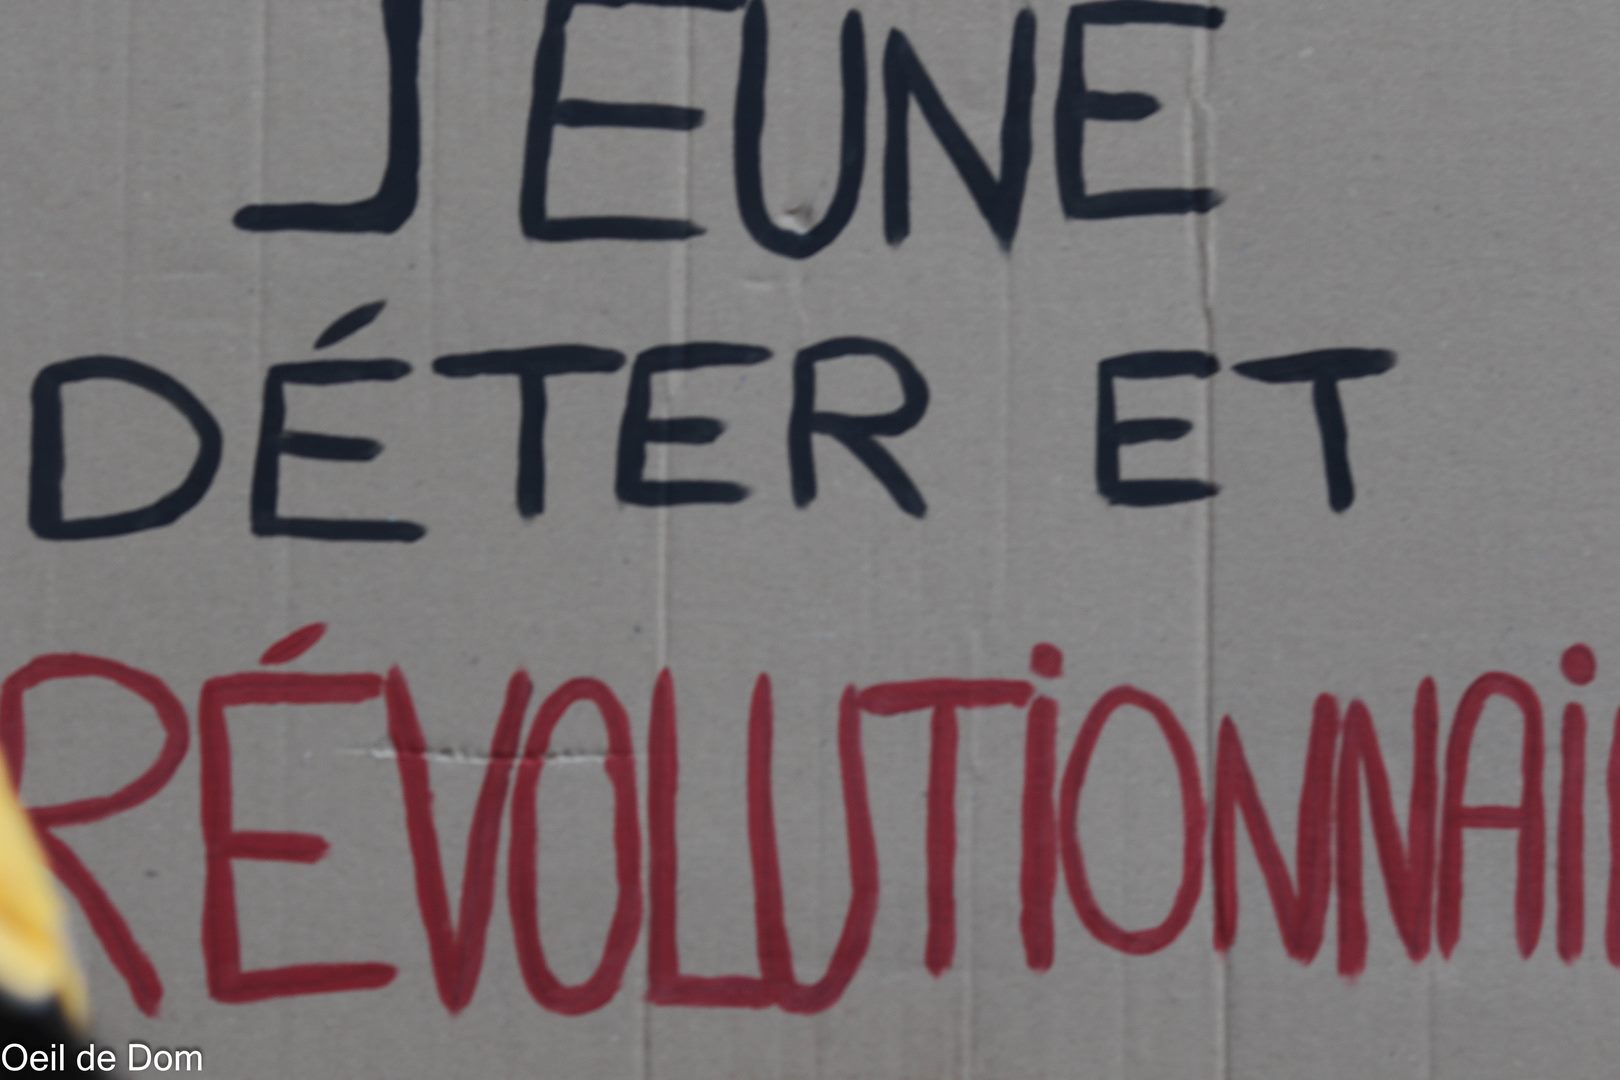 JEUNE
DÉTER ET
RÉVOLUTiONNAi
Oeil de Dom